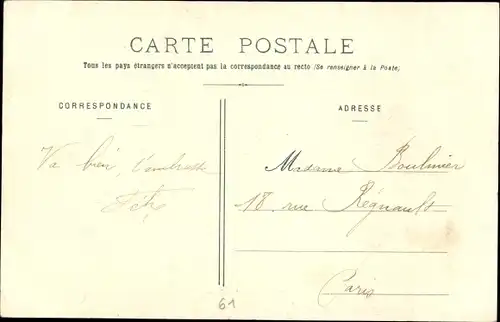 CARTE POSTALE
Tous les pays étrangers n'acceptent pas la correspondance au recto (Se renseigner à la Poste)
CORRESPONDANCE
ADRESSE
Va bien, t'embrasse
Madame Boulinier
18 rue Régnault
Paris
61